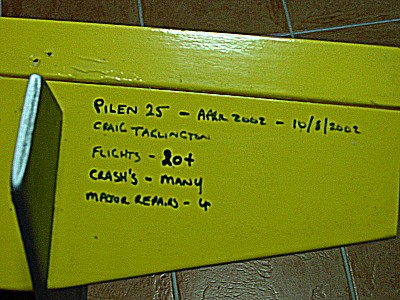 PILEN 25 - APRIL 2002 - 10/8/2002
CRAIG TAGLINGTON
FLIGHTS - 20+
CRASH'S - MANY
MAJOR REPAIRS - 4